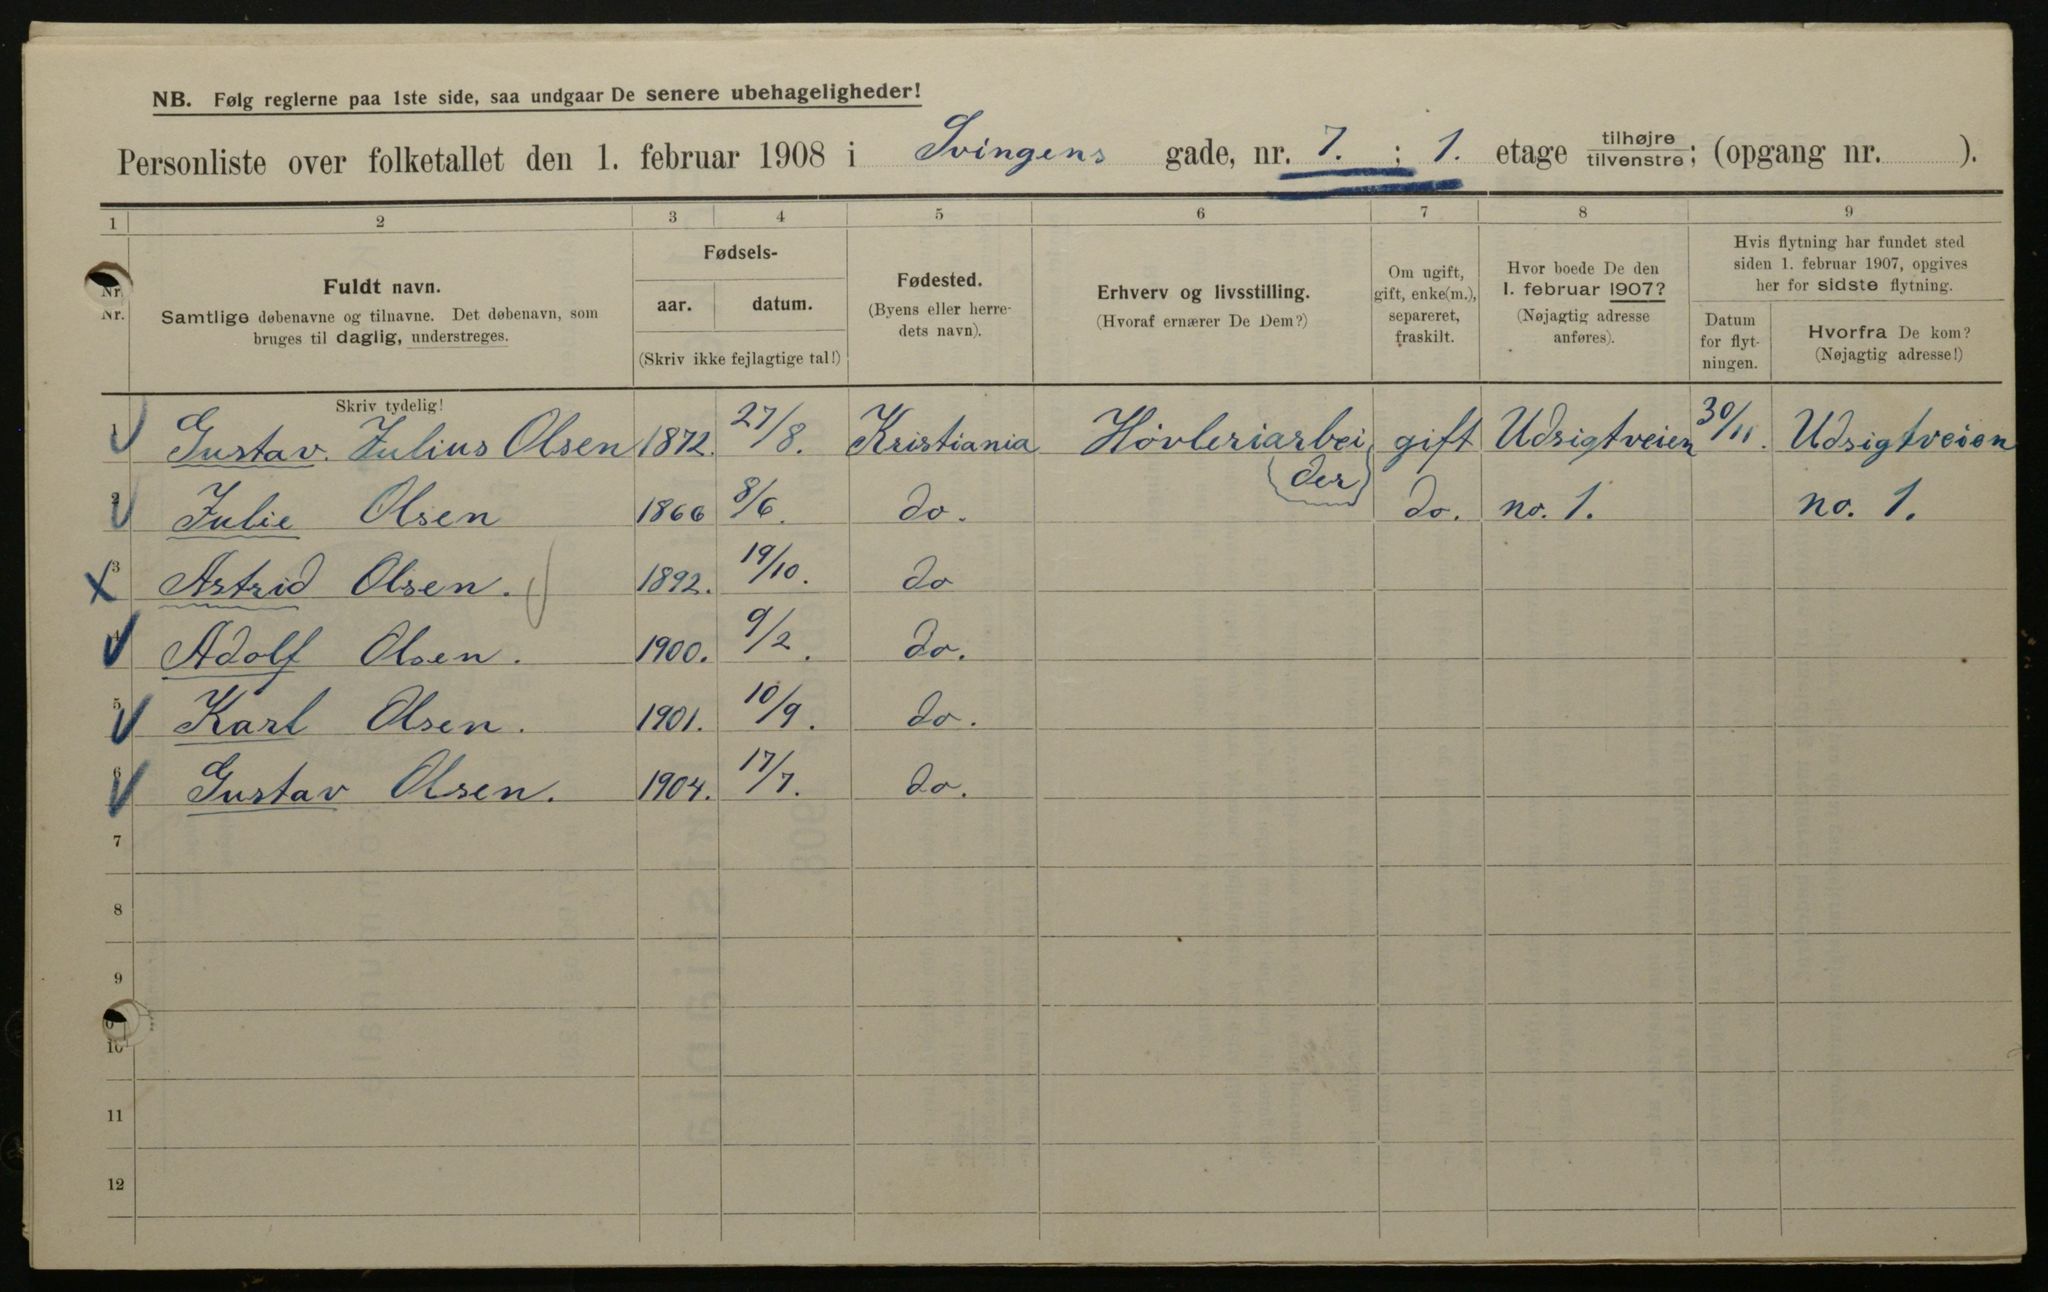 NB. Følg reglerne paa 1ste side, saa undgaar De senere ubehageligheder!
Personliste over folketallet den 1. februar 1908 i Svingens gade, nr. 7. ; 1. etage tilhøjre tilvenstre; (opgang nr. ).
1 2 3 4 5 6 7 8 9
Nr. Nr.
Fuldt navn.
Samtlige døbenavne og tilnavne. Det døbenavn, som
bruges til daglig, understreges.
Skriv tydelig!
Fødsels-
aar. datum.
(Skriv ikke fejlagtige tal!)
Fødested.
(Byens eller herre-
dets navn).
Erhverv og livsstilling.
(Hvoraf ernærer De Dem?)
Om ugift,
gift, enke(m.),
separeret,
fraskilt.
Hvor boede De den
1. februar 1907?
(Nøjagtig adresse
anføres).
Hvis flytning har fundet sted
siden 1. februar 1907, opgives
her for sidste flytning.
Datum
for flyt-
ningen.
Hvorfra De kom?
(Nøjagtig adresse!)
1 Gustav. Julius Olsen 1872. 27/8. Kristiania Høvleriarbei der gift Udsigtveien 30/11. Udsigtveien
2 Julie Olsen 1866 8/6. do. do. no. 1. no. 1.
3 Astrid Olsen. 1892. 19/10. do
4 Adolf Olsen. 1900. 9/2. do.
5 Karl Olsen. 1901. 10/9. do.
6 Gustav Olsen. 1904. 17/7. do.
7
8
9
10
11
12